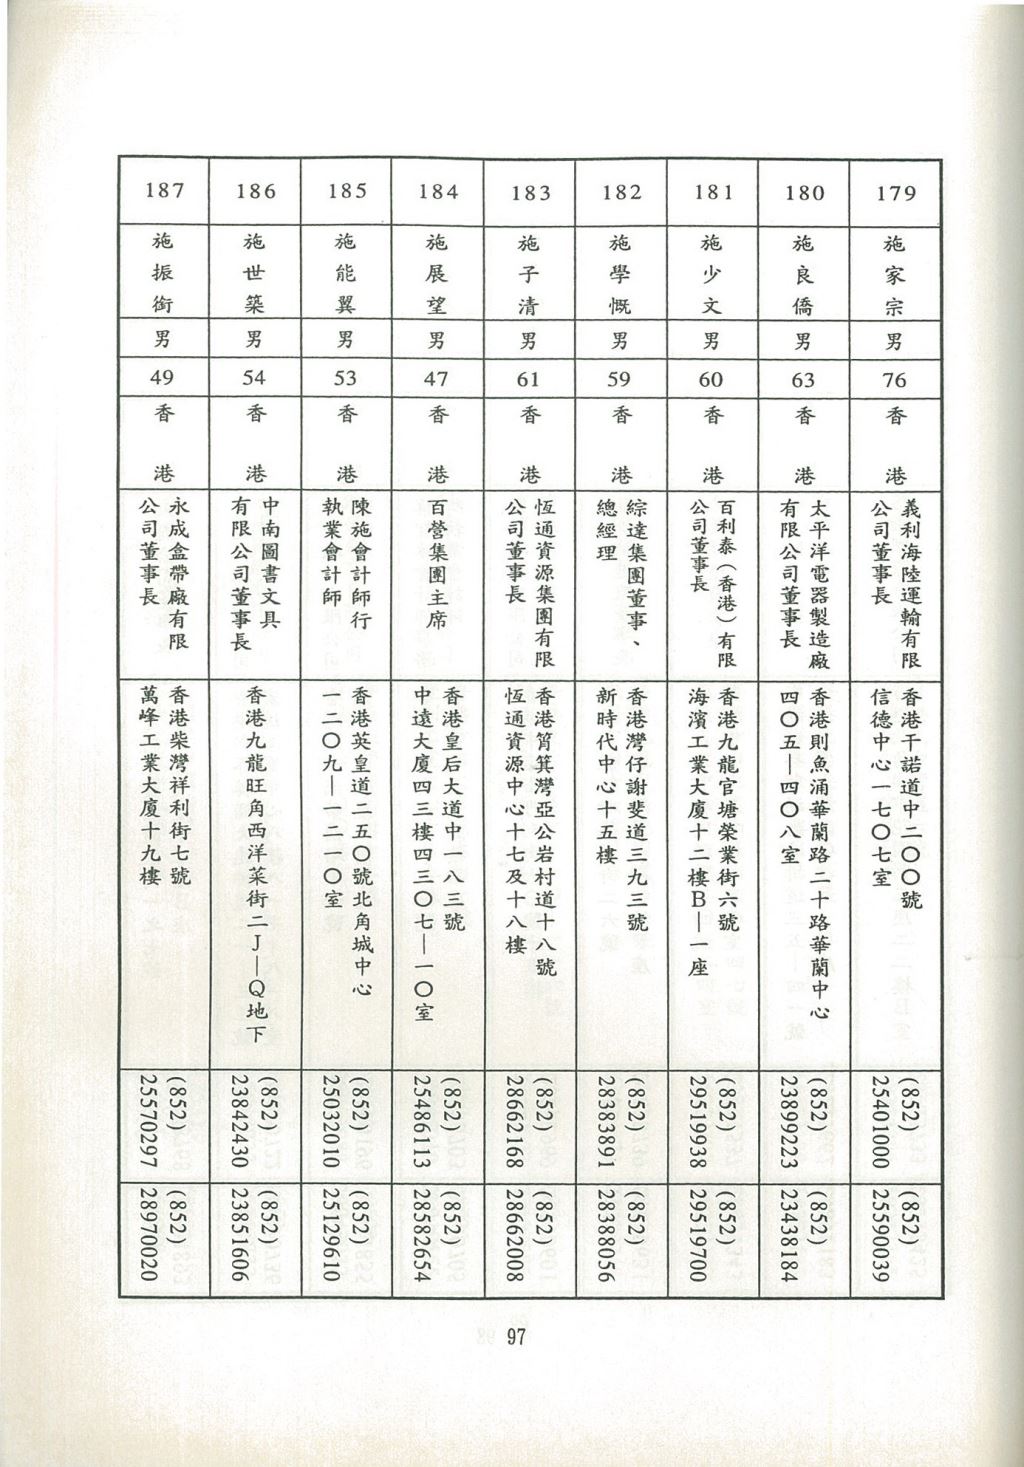 179
施家宗
男
76
香港
義利海陸運輸有限
公司董事長
香港干諾道中二〇〇號
信德中心一七〇七室
(852)
25401000
(852)
25590039
180
施良僑
男
63
香港
太平洋電器製造廠
有限公司董事長
香港則魚涌華蘭路二十路華蘭中心
四〇五—四〇八室
(852)
23899223
(852)
23438184
181
施少文
男
60
香港
百利泰(香港)有限
公司董事長
香港九龍官塘榮業街六號
海濱工業大廈十二樓B—一座
(852)
29519938
(852)
29519700
182
施學慨
男
59
香港
綜達集團董事、
總經理
香港灣仔謝斐道三九三號
新時代中心十五樓
(852)
28383891
(852)
28388056
183
施子清
男
61
香港
恆通資源集團有限
公司董事長
香港筲箕灣亞公岩村道十八號
恆通資源中心十七及十八樓
(852)
28662168
(852)
28662008
184
施展望
男
47
香港
百營集團主席
香港皇后大道中一八三號
中遠大廈四三樓四三〇七—一〇室
(852)
25486113
(852)
28582654
185
施能翼
男
53
香港
陳施會計師行
執業會計師
香港英皇道二五〇號北角城中心
一二〇九—一二一〇室
(852)
25032010
(852)
25129610
186
施世築
男
54
香港
中南圖書文具
有限公司董事長
香港九龍旺角西洋菜街二J—Q地下
(852)
23842430
(852)
23851606
187
施振銜
男
49
香港
永成盒帶廠有限
公司董事長
香港柴灣祥利街七號
萬峰工業大廈十九樓
(852)
25570297
(852)
28970020
97